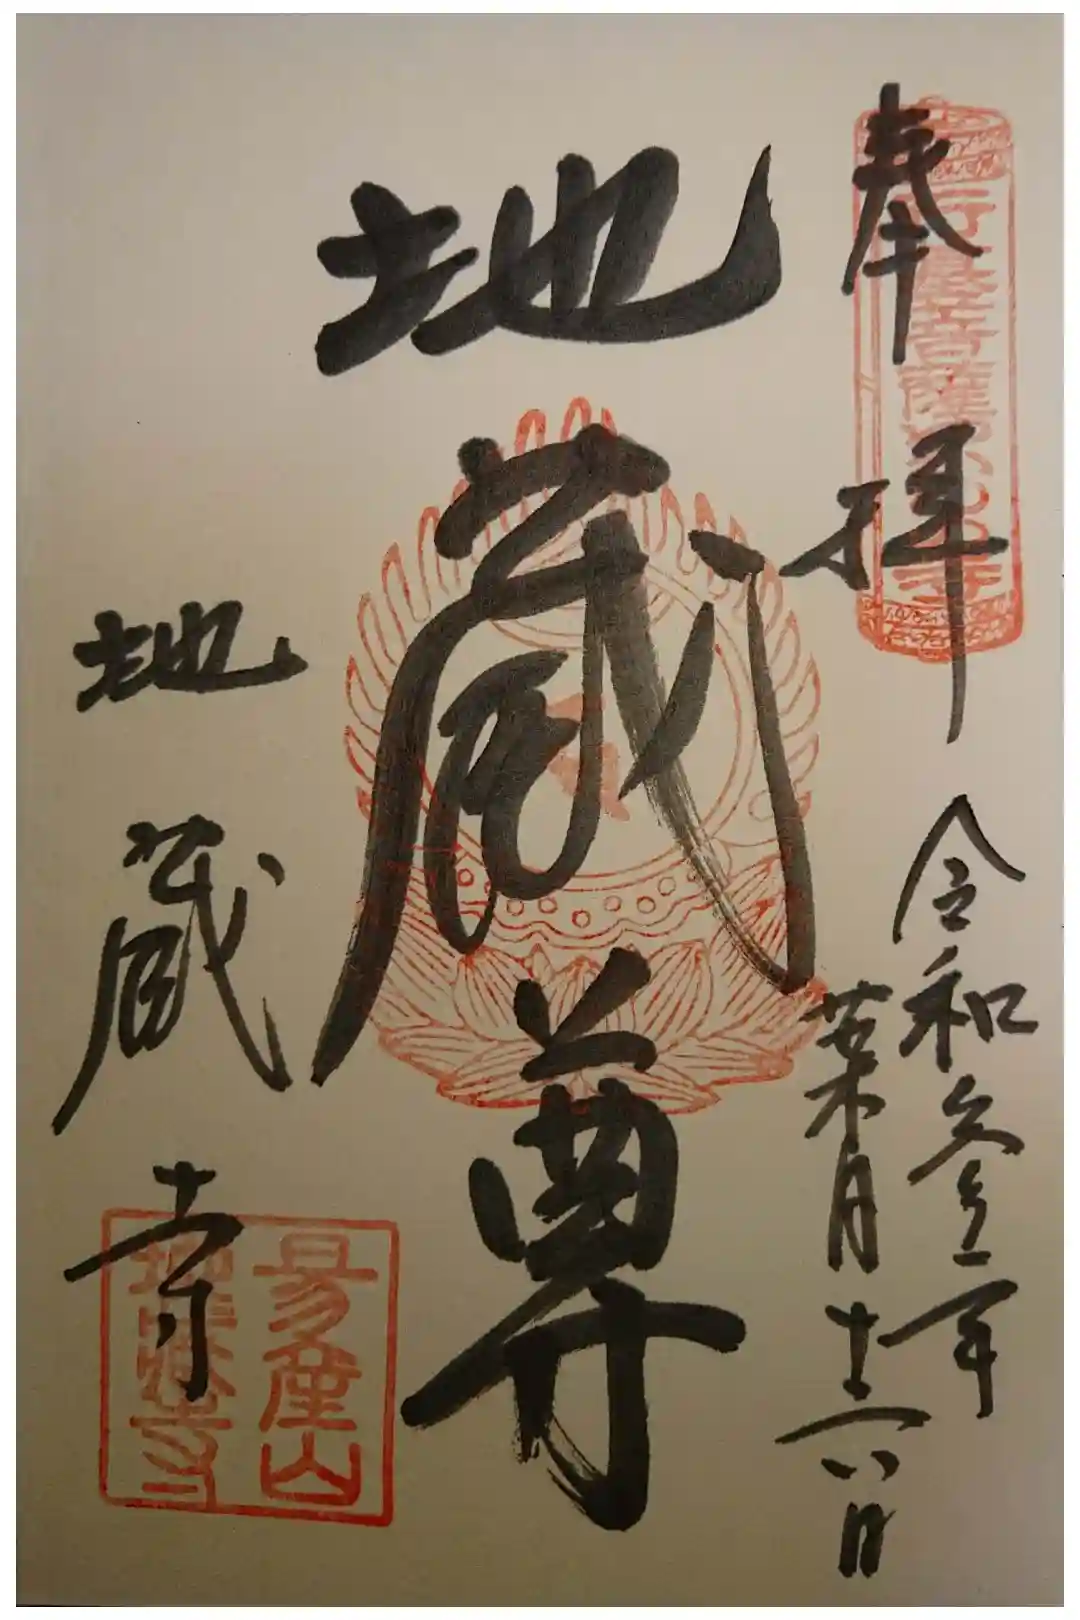 奉拝
令和参年
葉月十六日
地蔵尊
地蔵寺
易産山
地蔵寺